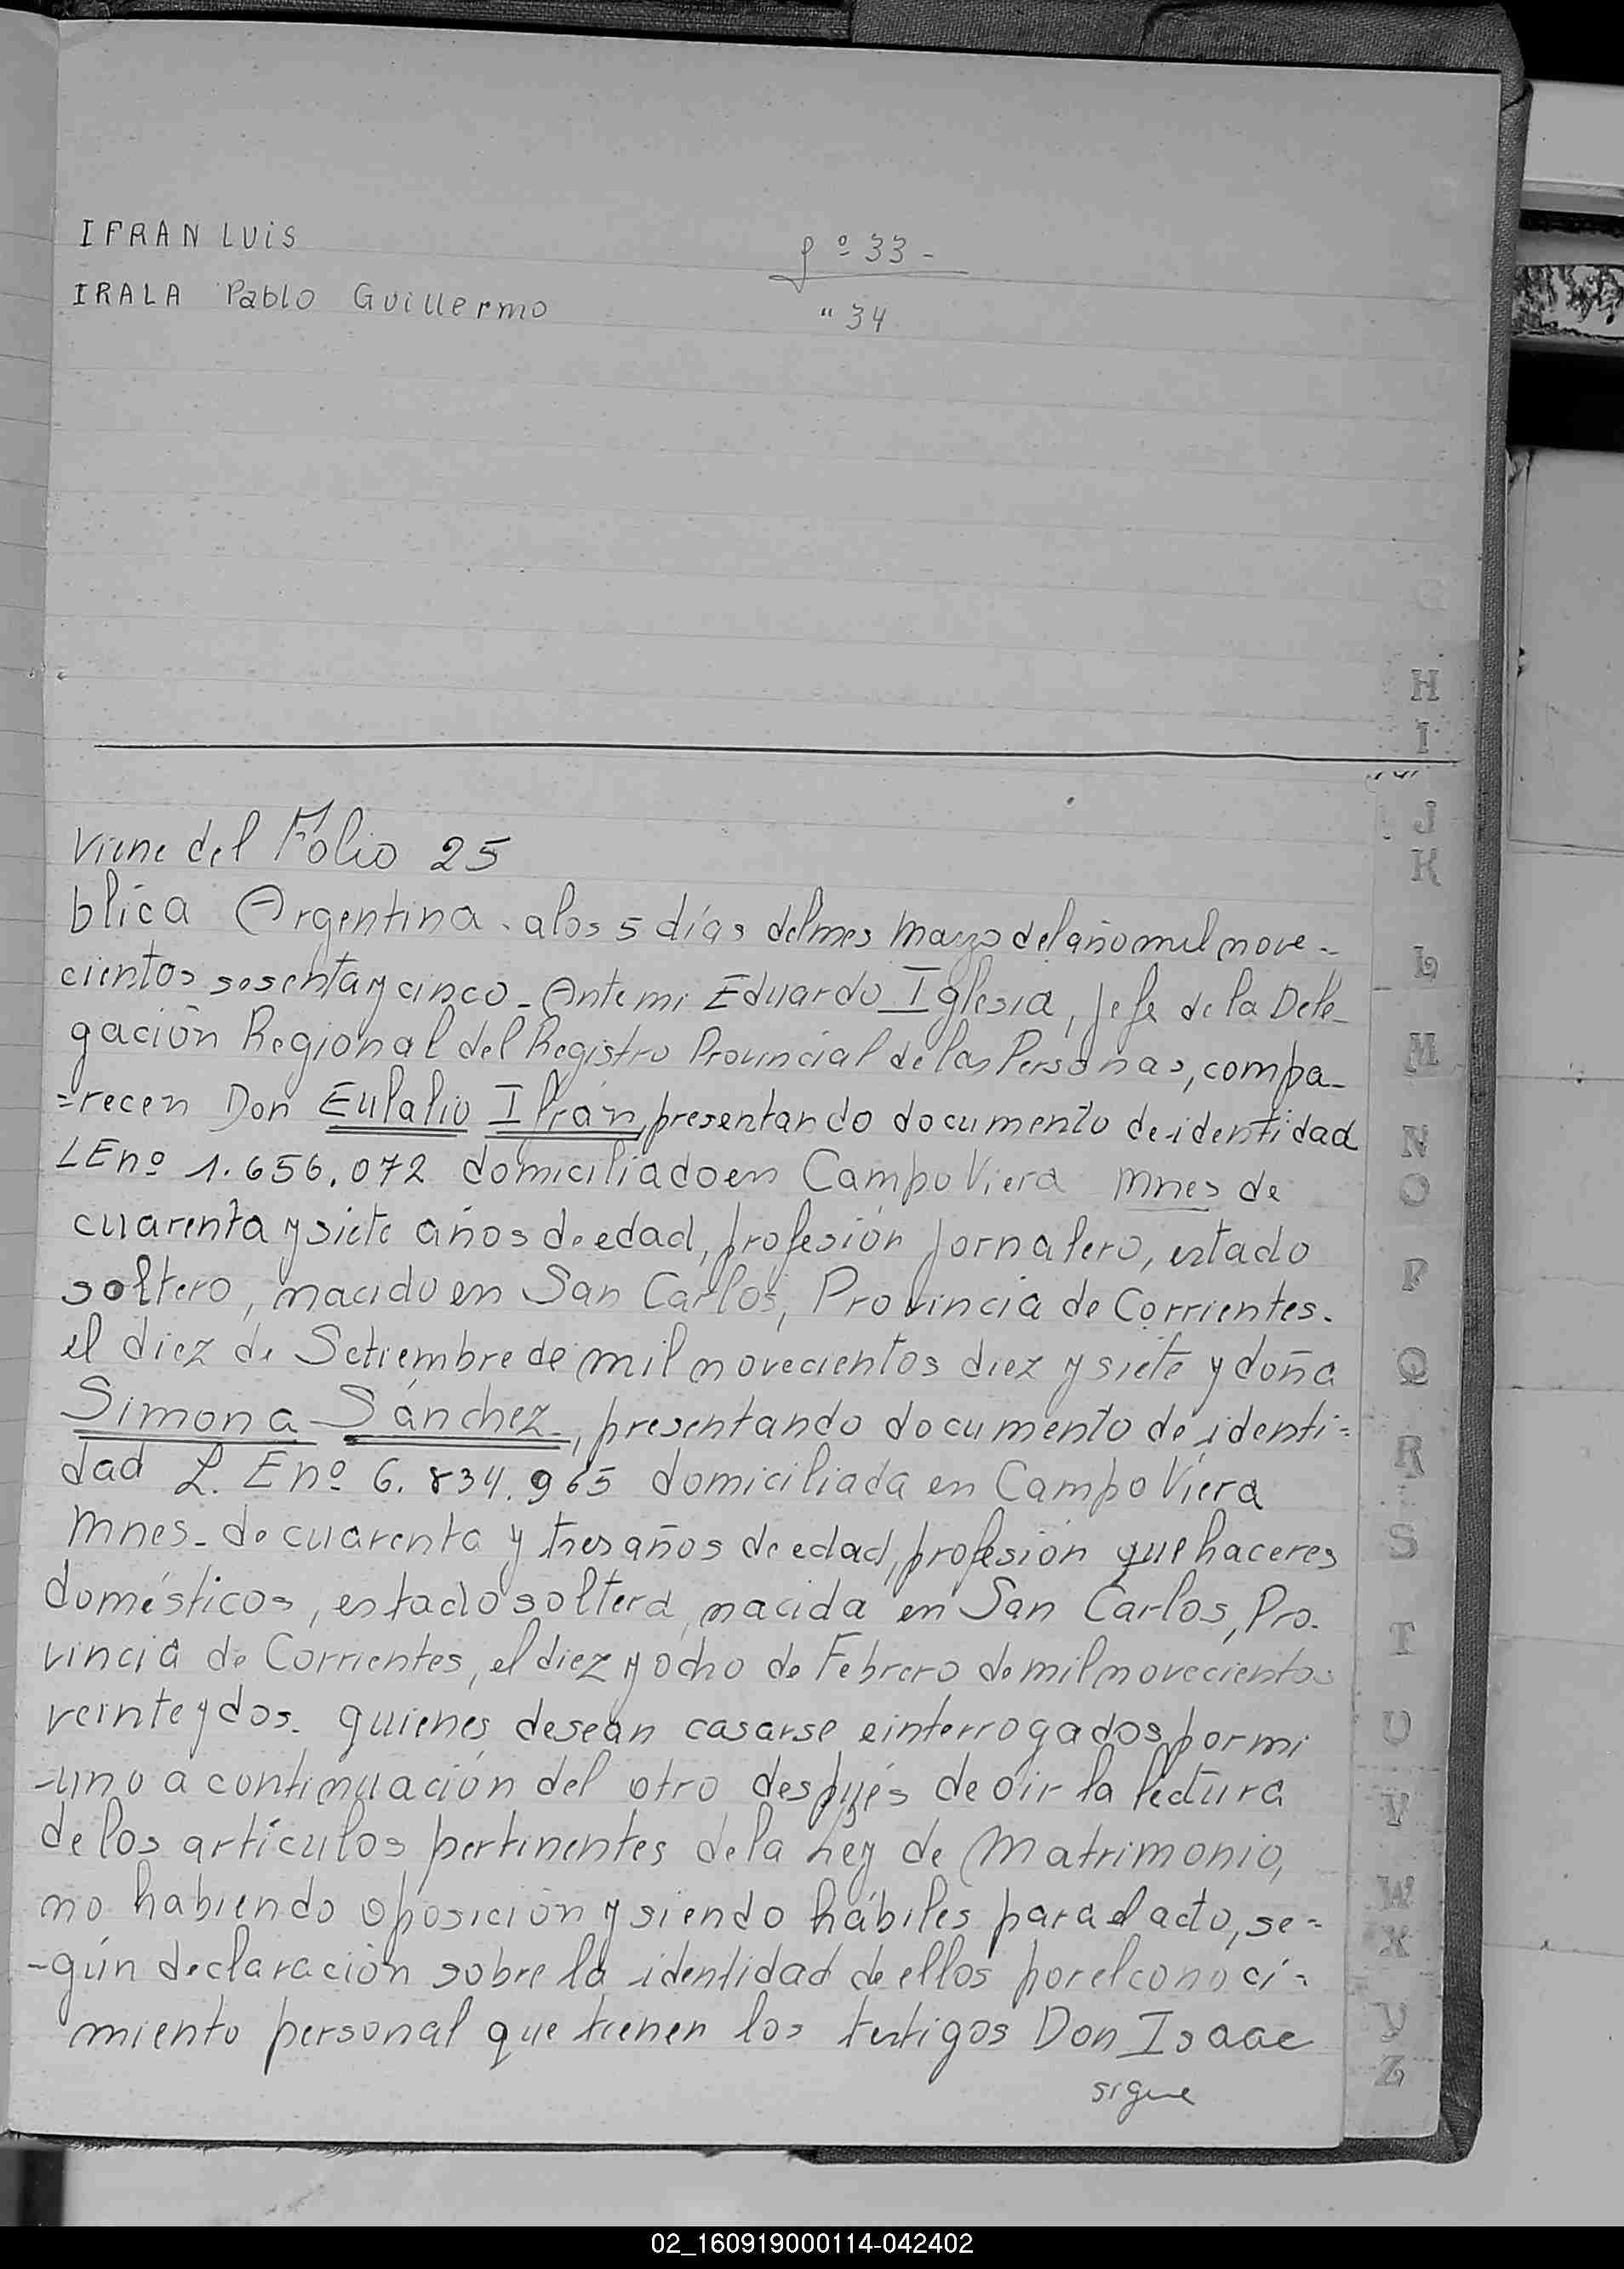 IFRAN LUiS fº 33 -
IRALA Pablo Guillermo " 34
H
I
J
K
L
M
N
O
P
Q
R
S
T
U
V
W
X
Y
Z
Viene del Folio 25
blica Argentina. a los 5 días del mes Marzo del año mil nove-
cientos sesenta y cinco - Ante mi Eduardo Iglesia, Jefe de la Dele-
gación Regional del Registro Provincial de las Personas, compa-
=recen Don Eulalio Ifrán, presentando documento de identidad
LE nº 1.656.072 domiciliado en Campo Viera Mnes de
cuarenta y siete años de edad, profesión Jornalero, estado
soltero, nacido en San Carlos, Provincia de Corrientes.
el diez de Setiembre de mil novecientos diez y siete y doña
Simona Sánchez, presentando documento de identi=
dad L. E nº 6.834.965 domiciliada en Campo Viera
Mnes - de cuarenta y tres años de edad, profesión que haceres
domésticos, estado soltera, nacida en San Carlos, Pro-
vincia de Corrientes, el diez y ocho de Febrero de mil novecientos
veinte y dos. quienes desean casarse e interrogados por mi
-uno a continuación del otro después de oir la lectura
de los artículos pertinentes de la Ley de Matrimonio,
no habiendo oposición y siendo hábiles para el acto, se=
-gún declaración sobre la identidad de ellos por el conoci=
miento personal que tienen los testigos Don Isaac
sigue
02_160919000114-042402